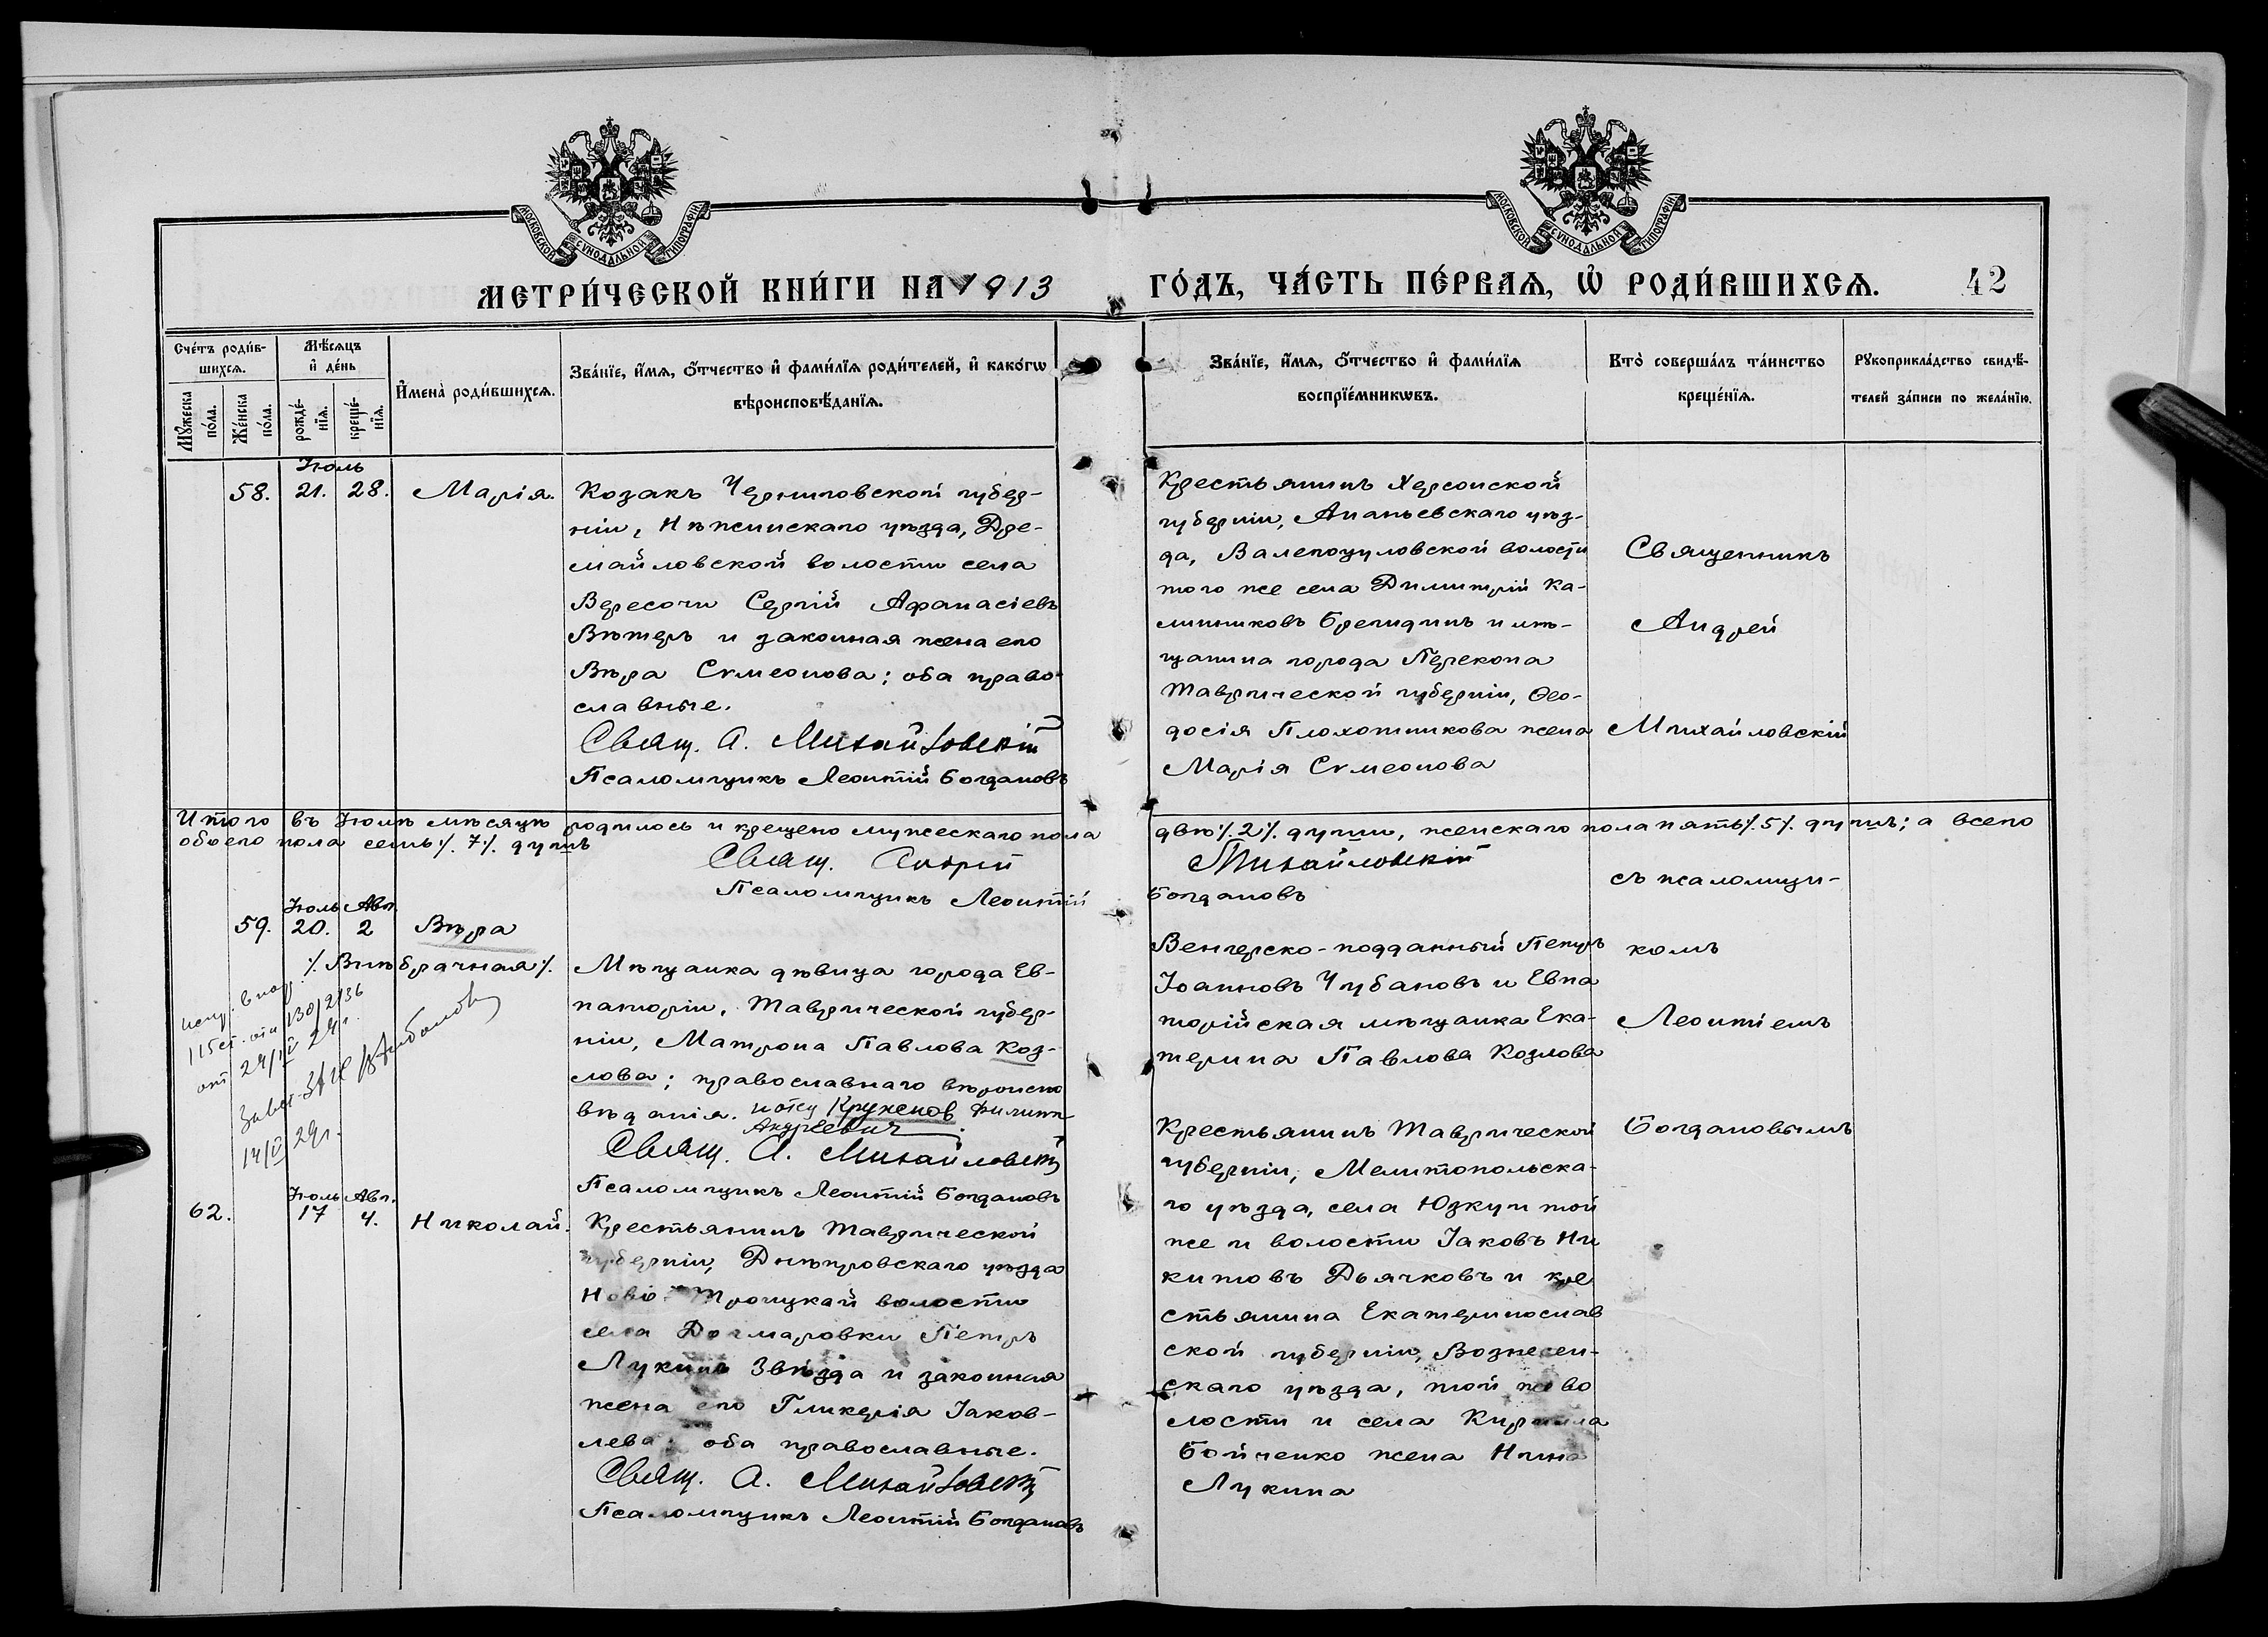 МОСКОВСКОЙ СѴНОДАЛЬНОЙ ТИПОГРАФІИ
МОСКОВСКОЙ СѴНОДАЛЬНОЙ ТИПОГРАФІИ
МЕТРИ́ЧЕСКОЙ КНИ́ГИ НА 1913
ГО́ДЪ, ЧА́СТЬ ПЕ́РВАѦ, Ѽ РОДИ́ВШИХСѦ.
42
Сче́тъ роди́в-
шихсѧ.
Мѣ́сѧцъ
и҆ де́нь
Мꙋ́жеска
по́ла.
Же́нска
по́ла.
рожде́-
нїѧ.
креще́-
нїѧ.
И҆мена̀ роди́вшихсѧ.
Зва́нїе, и҆́мѧ, ѻ҆́тчество и҆ фами́лїѧ роди́телей, и҆ како́гѡ
вѣроисповѣ́данїѧ.
Зва́нїе, и҆́мѧ, ѻ҆́тчество и҆ фами́лїѧ
воспрїе́мникѡвъ.
Кто̀ соверша́лъ та́инство
креще́нїѧ.
Рꙋкоприкла́дство свидѣ́-
телей за́писи по жела́нїю.
Іюль
58. 21. 28. Марія.
Козакъ Черниговской губер-
ніи, Нѣжинскаго уѣзда, Дре-
майловской волости села
Вересочи Сергій Афанасіевъ
Вѣтеръ и законная жена его
Вѣра Сѵмеонова; оба право-
славные.
Свящ. А. Михайловскій
Псаломщикъ Леонтій Богдановъ
Крестьянинъ Херсонской
губерніи, Ананьевскаго уѣз-
да, Валегоцуловской волости
того же села Димитрій Ка-
линниковъ Бренидинъ и мѣ-
щанина города Перекопа
Таврической губерніи, Ѳео-
досія Плохотникова жена
Марія Сѵмеонова
Священникъ
Андрей
Михайловскій
Итого въ Іюлѣ мѣсяцѣ родилось и крещено мужескаго пола двѣ ٪2٪ души, женскаго пола пять ٪5٪ душъ; а всего
обоего пола семь ٪7٪ душъ
Свящ. Андрей Михайловскій
Псаломщикъ Леонтій Богдановъ
Іюль Авг.
59. 20. 2 Вѣра
٪Внѣбрачная٪.
Мѣщанка дѣвица города Ев-
паторіи, Таврической губер-
ніи, Матрона Павлова Коз-
лова; православнаго вѣроиспо
вѣданія. Крукенов Филипп
Андреевич
Свящ. А. Михайловскій
Псаломщикъ Леонтій Богдановъ
115 ст.
от 24/IV 29 г.
14/V 29 г.
Венгерско-подданный Петръ
Іоанновъ Чубановъ и Евпа
торійская мѣщанка Ека-
терина Павлова Козлова
съ псаломщи-
комъ
Леонтіемъ
Богдановымъ
Іюль Авг.
62. 17 4. Николай.
Крестьянинъ Таврической
губерніи, Днѣпровскаго уѣзда
Ново-Троицкай волости
села Догмаровки Петръ
Лукинъ Звѣзда и законная
жена его Гликерія Іаков-
лева; оба православные.
Свящ. А. Михайловскій
Псаломщикъ Леонтій Богдановъ
Крестьянинъ Таврической
губерніи, Мелитопольска-
го уѣзда, села Юзкуи той
же и волости Іаковъ Ни
китовъ Дьячковъ и кре
стьянина Екатеринослав
ской губерніи, Вознесен-
скаго уѣзда, той же во
лости и села Кирилла
Бойченко жена Нина
Лукина